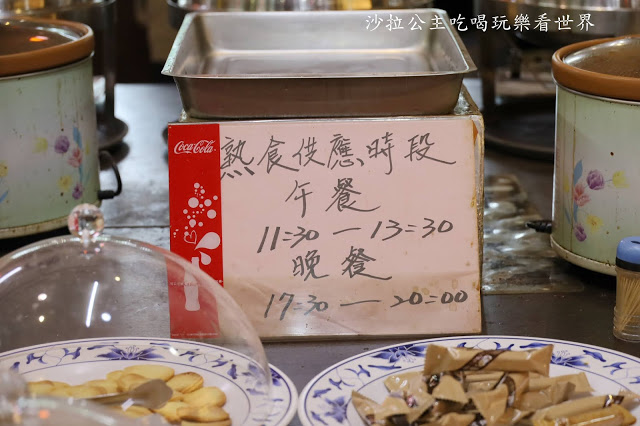 沙拉公主吃喝玩樂看世界
Coca-Cola
熟食供應時段
午餐
11:30 — 13:30
晚餐
17:30 — 20:00